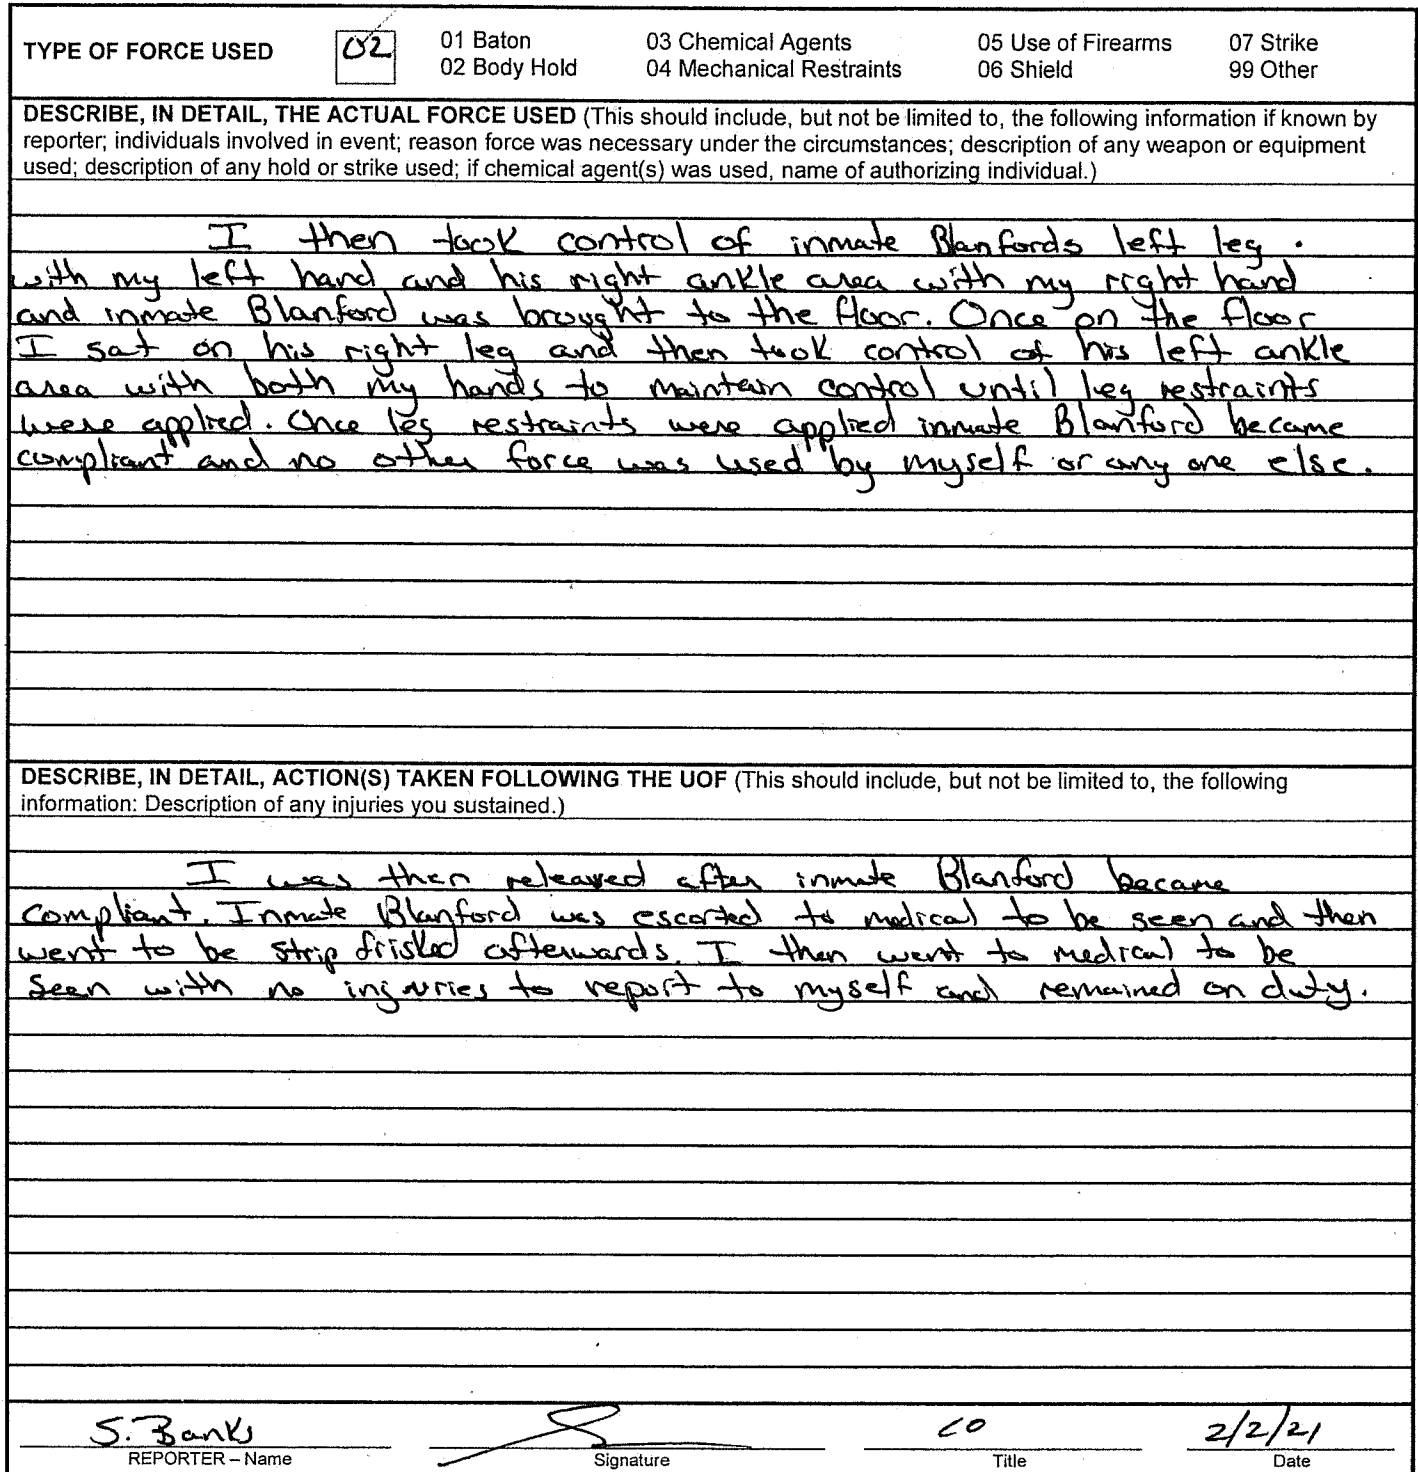 TYPE OF FORCE USED 02 01 Baton 03 Chemical Agents 05 Use of Firearms 07 Strike
02 Body Hold 04 Mechanical Restraints 06 Shield 99 Other
DESCRIBE, IN DETAIL, THE ACTUAL FORCE USED (This should include, but not be limited to, the following information if known by
reporter; individuals involved in event; reason force was necessary under the circumstances; description of any weapon or equipment
used; description of any hold or strike used; if chemical agent(s) was used, name of authorizing individual.)
I then took control of inmate Blanfords left leg.
with my left hand and his right ankle area with my right hand
and inmate Blanford was brought to the floor. Once on the floor
I sat on his right leg and then took control of his left ankle
area with both my hands to maintain control until leg restraints
were applied. Once leg restraints were applied inmate Blanford became
compliant and no other force was used by myself or any one else.
DESCRIBE, IN DETAIL, ACTION(S) TAKEN FOLLOWING THE UOF (This should include, but not be limited to, the following
information: Description of any injuries you sustained.)
I was then released after inmate Blanford became
compliant. Inmate Blanford was escorted to medical to be seen and then
went to be strip frisked afterwards. I then went to medical to be
seen with no injuries to report to myself and remained on duty.
S. Banks CO 2/2/21
REPORTER – Name Signature Title Date